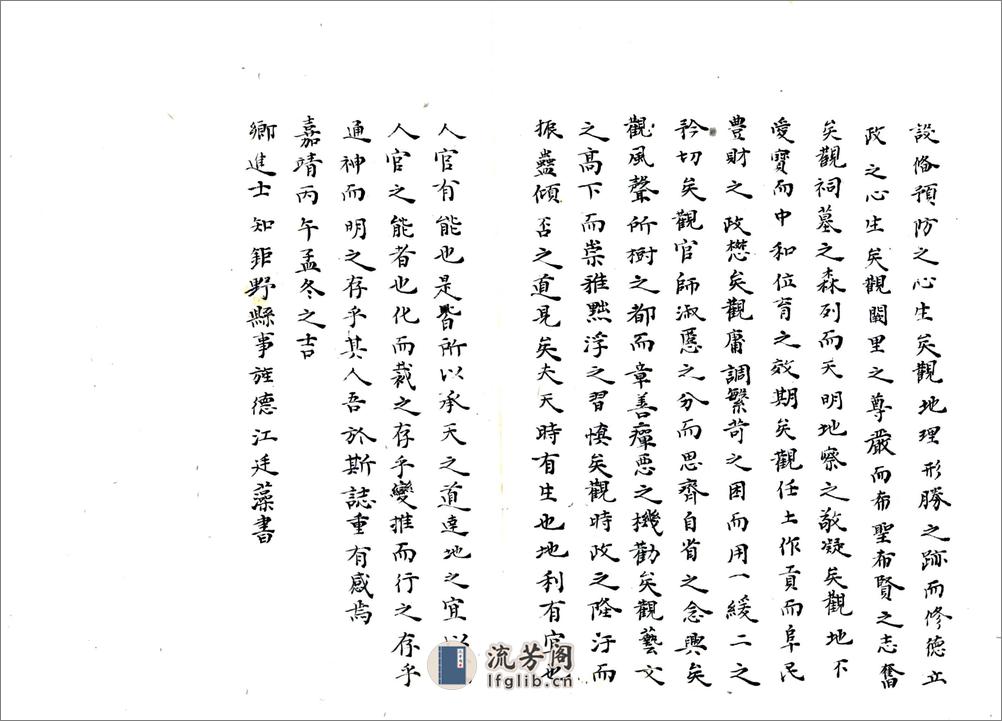 設俻預防之心生矣觀地理形勝之跡而修德立
政之心生矣觀闕里之尊嚴而希聖希賢之志奮
矣觀祠墓之森列而天明地察之敬凝矣觀地不
愛寳而中和位育之效期矣觀任土作貢而阜民
豊財之政懋矣觀庸調繁苛之困而用一緩二之
矜切矣觀官師淑慝之分而思齊自省之念興矣
觀風聲所樹之都而章善癉悪之機勸矣觀藝文
之髙下而崇雅黜浮之習慎矣觀時政之隆汙而
振蠱傾否之道見矣夫天時有生也地利有宜也
人官有能也是皆所以承天之道達地之宜以
人官之能者也化而裁之存乎變推而行之存乎
通神而明之存乎其人吾於斯誌重有感焉
嘉靖丙午孟冬之吉
鄉進士知鉅野縣事旌德江廷藻書
流芳阁
lfglib.cn